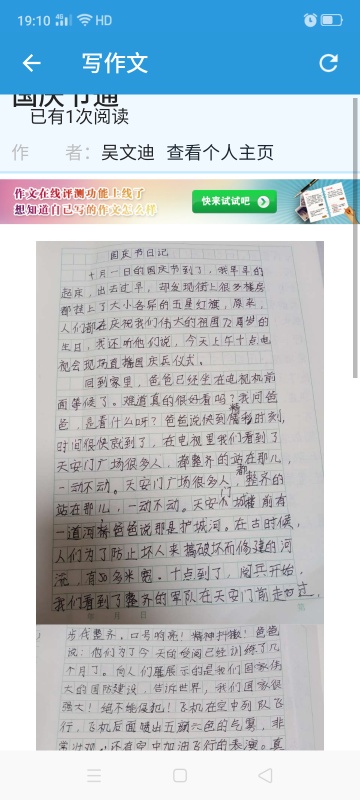 19:10
4G
HD
写作文
国庆节通
已有1次阅读
作 者: 吴文迪 查看个人主页
作文在线评测功能上线了
想知道自己写的作文怎么样
快来试试吧
国庆节日记
十月一日的国庆节到了,我早早的
起床,出去过早,却发现街上很多楼房
都挂上了大小各异的五星红旗,原来,
人们都在庆祝我们伟大的祖国72周岁的
生日,我还听他们说,今天上午十点电
视会现场直播国庆兵仪式。
回到家里,爸爸已经坐在电视机前
面等候了。难道真的很好看吗?我问爸
爸,是看什么呀?爸爸说快到精彩时刻,
时间很快就到了,在电视里我们看到了
天安门广场很多人,都整齐的站在那儿,
一动不动。天安门广场很多人,都整齐的
站在那儿,一动不动。天安门城楼前有
一道河,爸爸说那是护城河。在古时候,
人们为了防止坏人来搞破坏而修建的河
流,有50多米宽。十点到了,阅兵开始,
我们看到了整齐的军队在天安门前走过,
步伐整齐,口号响亮!精神抖擞!爸爸
说:他们为了今天的阅兵已经训练了几
个月了。向人们展示的是我们国家伟
大的国防建设,告诉世界,我们国家很
强大!绝不能侵犯!飞机在空中列队飞
行,飞机后面喷出五颜六色的气雾,非
常壮观,还有空中加油飞行的表演。真